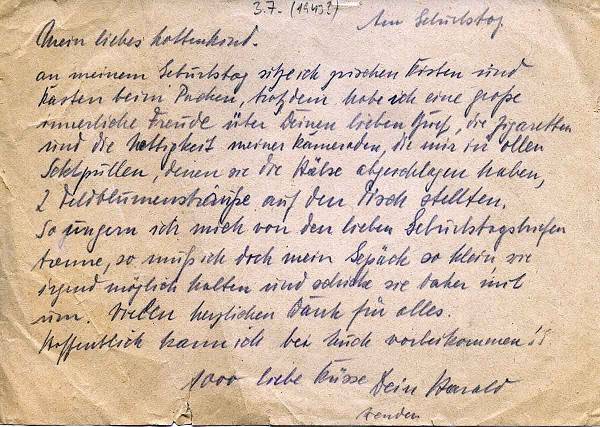 3.7. (1943?)
Am Geburtstag
Mein liebes
an meinem Geburtstag sitze ich zwischen Kisten und
Kasten beim Packen, trotzdem habe ich eine große
innerliche Freude über Deinen lieben Brief, die Zigaretten
und die Nettigkeit meiner Kameraden, die mir in ollen
Sektpullen, denen sie die Hälse abgeschlagen haben,
2 Feldblumensträuße auf den Tisch stellten.
So ungern ich mich von den lieben Geburtstagsbriefen
trenne, so muß ich doch mein Gepäck so klein wie
irgend möglich halten und schicke sie daher mit
um. Vielen herzlichen Dank für alles.
Hoffentlich kann ich bei Euch vorbeikommen!
1000 liebe Küsse Dein Harald